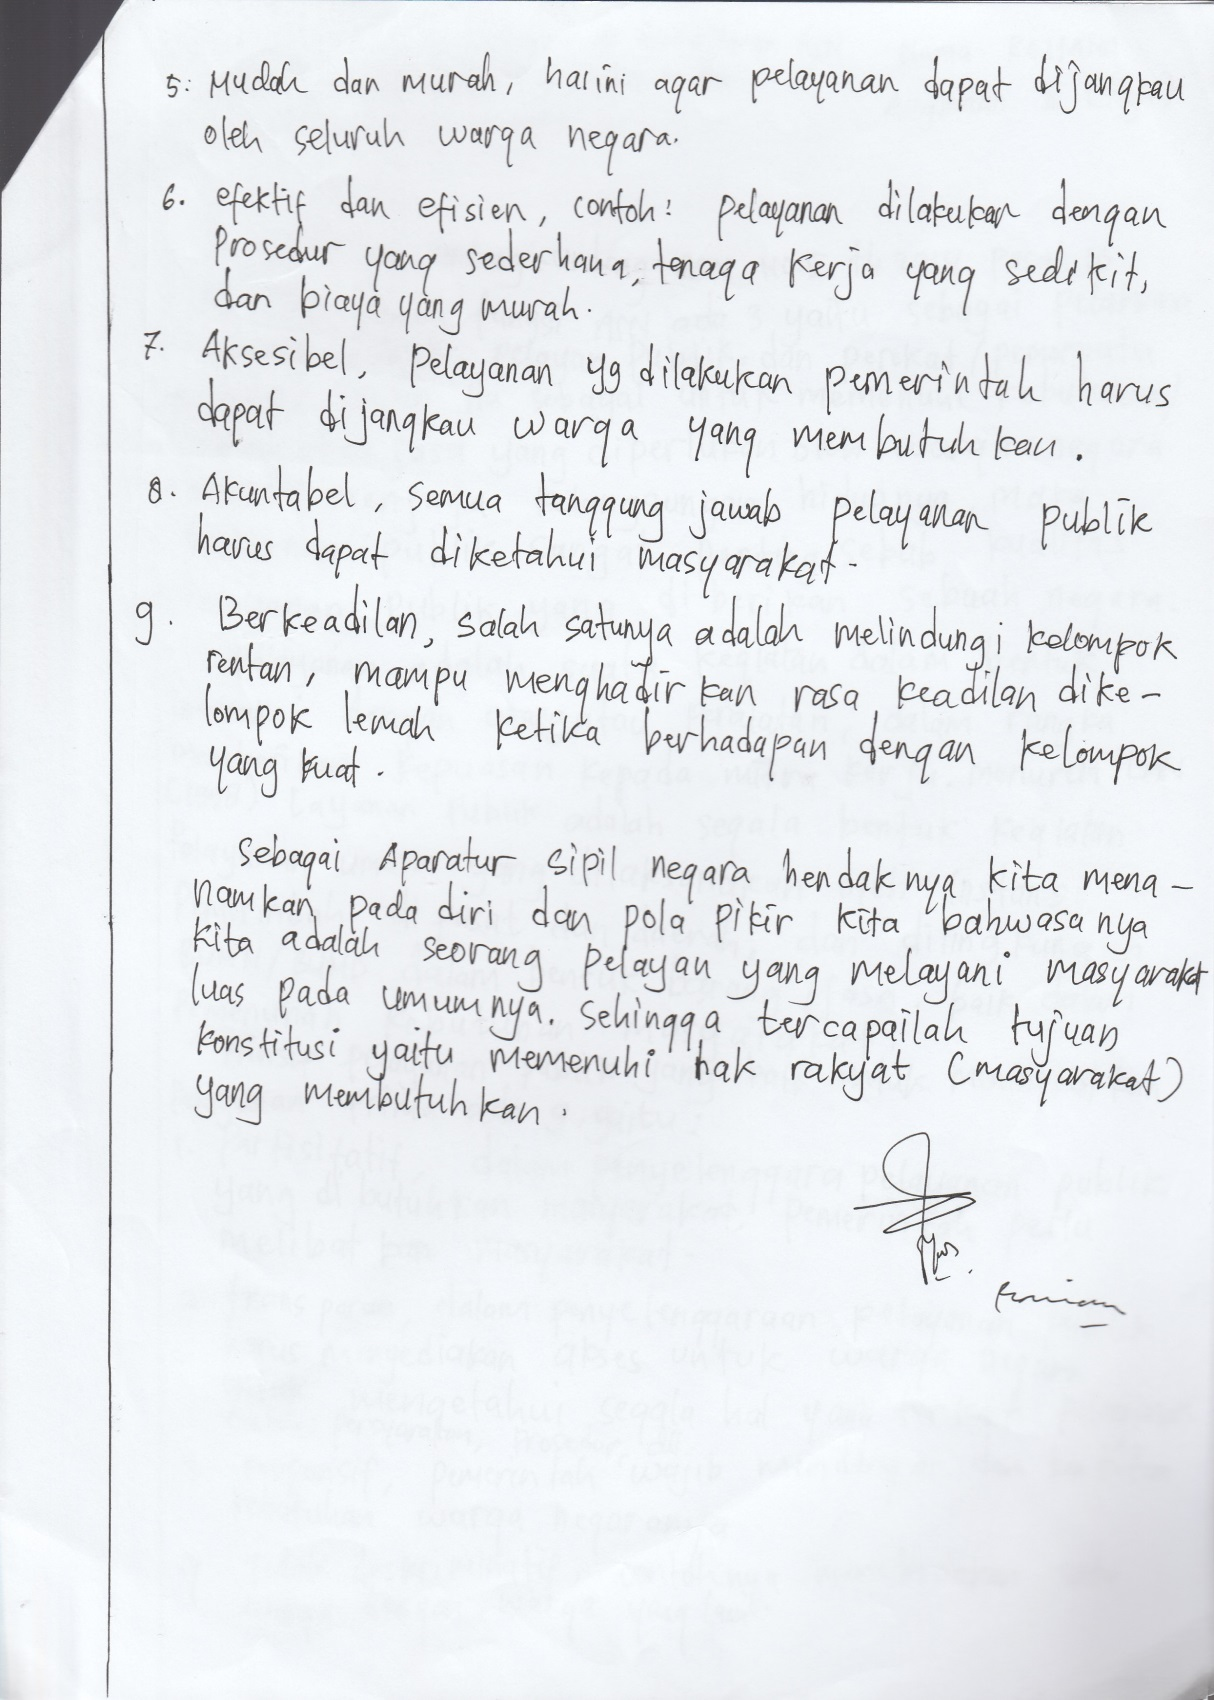 5. Mudah dan murah, hal ini agar pelayanan dapat dijangkau
oleh seluruh warga negara.
6. efektif dan efisien, contoh: pelayanan dilakukan dengan
Prosedur yang sederhana, tenaga kerja yang sedikit,
dan biaya yang murah.
7. Aksesibel, Pelayanan yg dilakukan pemerintah harus
dapat dijangkau warga yang membutuhkan.
8. Akuntabel, semua tanggung jawab pelayanan publik
harus dapat diketahui masyarakat.
9. Berkeadilan, salah satunya adalah melindungi kelompok
rentan, mampu menghadirkan rasa keadilan dike-
lompok lemah ketika berhadapan dengan kelompok
yang kuat.
Sebagai Aparatur sipil negara hendaknya kita mena-
namkan pada diri dan pola pikir kita bahwasanya
kita adalah seorang pelayan yang melayani masyarakat
luas pada umumnya. Sehingga tercapailah tujuan
konstitusi yaitu memenuhi hak rakyat (masyarakat)
yang membutuhkan.